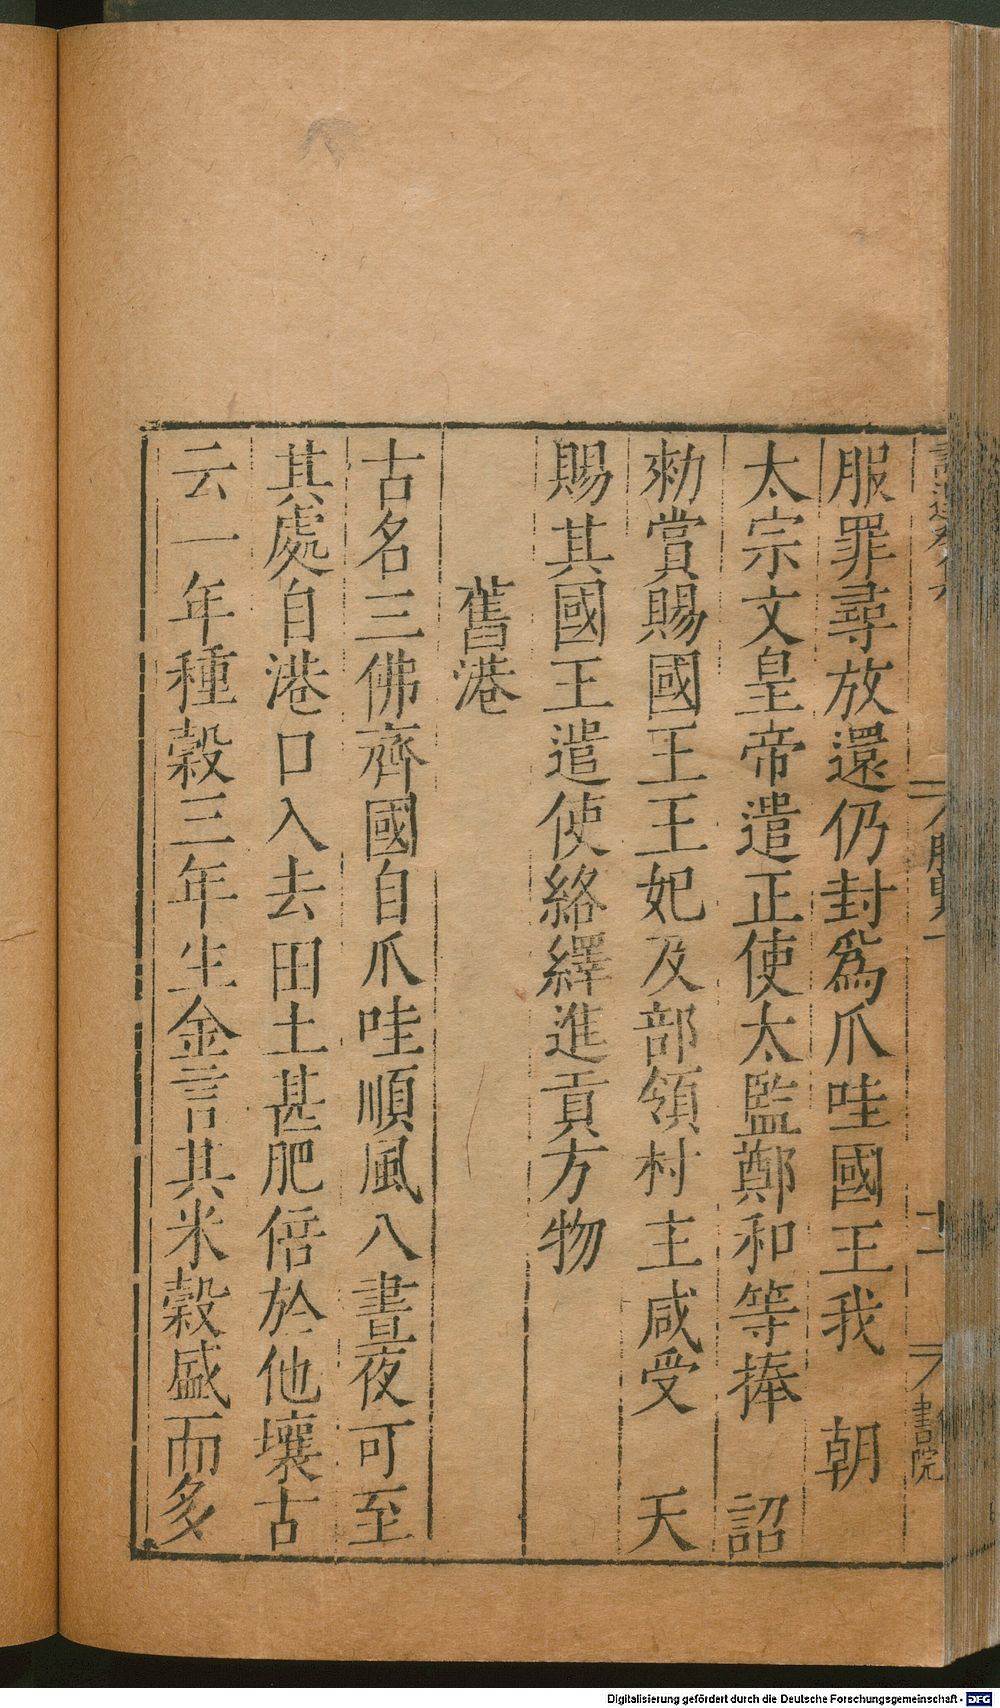 服罪尋放還仍封爲爪哇國王我　朝
太宗文皇帝遣正使太監鄭和等捧　詔
勑賞賜國王王妃及部領村主咸受　天
賜其國王遣使絡繹進貢方物
舊港
古名三佛齊國自爪哇順風八晝夜可至
其處自港口入去田土甚肥倍於他壤古
云一年種穀三年生金言其米穀盛而多
十一
書院
Digitalisierung gefördert durch die Deutsche Forschungsgemeinschaft - DFG